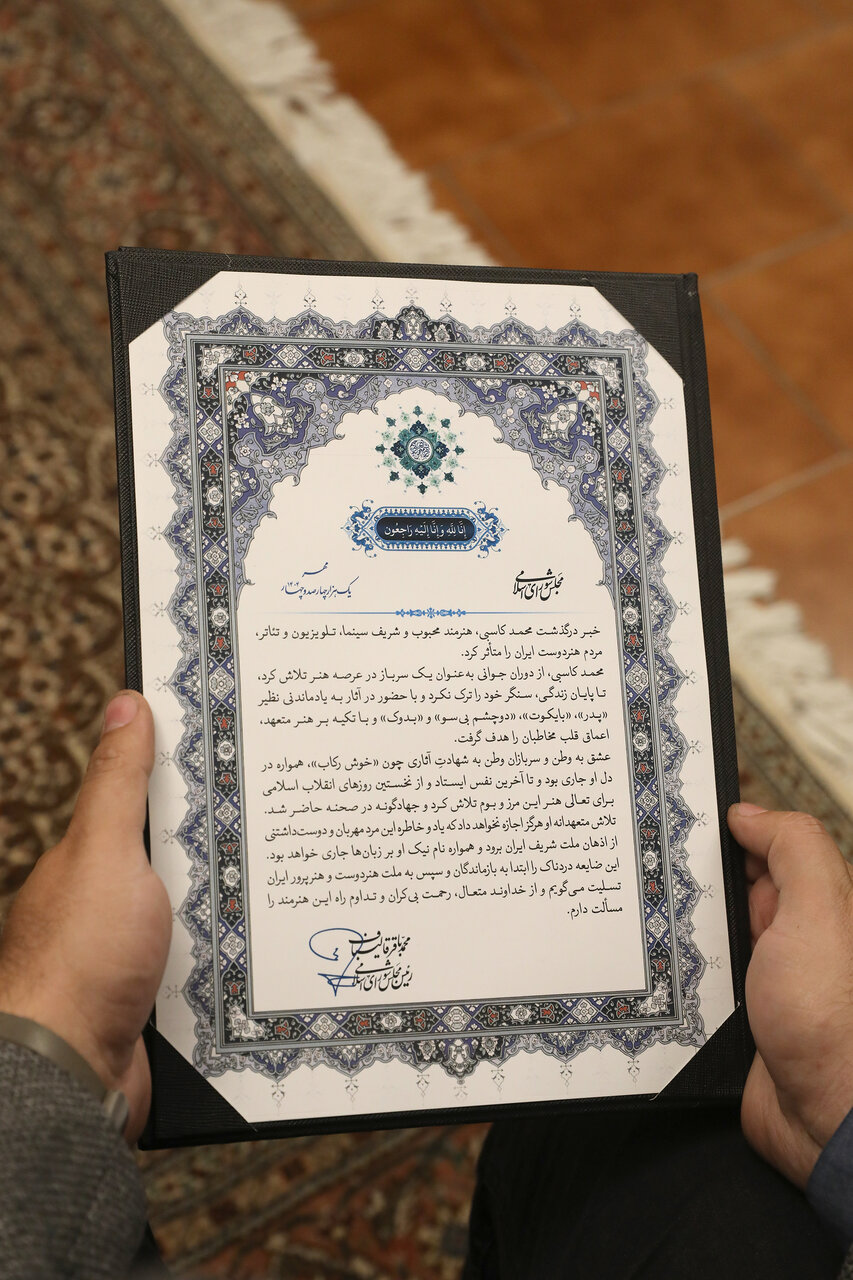 إِنَّا لِلَّهِ وَإِنَّا إِلَيْهِ رَاجِعُون
مجلس شورای اسلامی
مهر ۱۴۰۴
یک هزار چهارصد و چهار
خبر درگذشت محمد کاسبی، هنرمند محبوب و شریف سینما، تلویزیون و تئاتر،
مردم هنردوست ایران را متأثر کرد.
محمد کاسبی، از دوران جوانی به‌عنوان یک سرباز در عرصه هنر تلاش کرد،
تا پایان زندگی، سنگر خود را ترک نکرد و با حضور در آثار به یادماندنی نظیر
«پدر»، «بایکوت»، «دوچشم بی‌سو» و «بدوک» و با تکیه بر هنر متعهد،
اعماق قلب مخاطبان را هدف گرفت.
عشق به وطن و سربازان وطن به شهادتِ آثاری چون «خوش رکاب»، همواره در
دل او جاری بود و تا آخرین نفس ایستاد و از نخستین روزهای انقلاب اسلامی
برای تعالی هنر این مرز و بوم تلاش کرد و جهادگونه در صحنه حاضر شد.
تلاش متعهدانه او هرگز اجازه نخواهد داد که یاد و خاطره این مرد مهربان و دوست‌داشتنی
از اذهان ملت شریف ایران برود و همواره نام نیک او بر زبان‌ها جاری خواهد بود.
این ضایعه دردناک را ابتدا به بازماندگان و سپس به ملت هنردوست و هنرپرور ایران
تسلیت می‌گویم و از خداوند متعال، رحمت بی‌کران و تداوم راه این هنرمند را
مسألت دارم.
محمدباقر قالیباف
رئیس مجلس شورای اسلامی